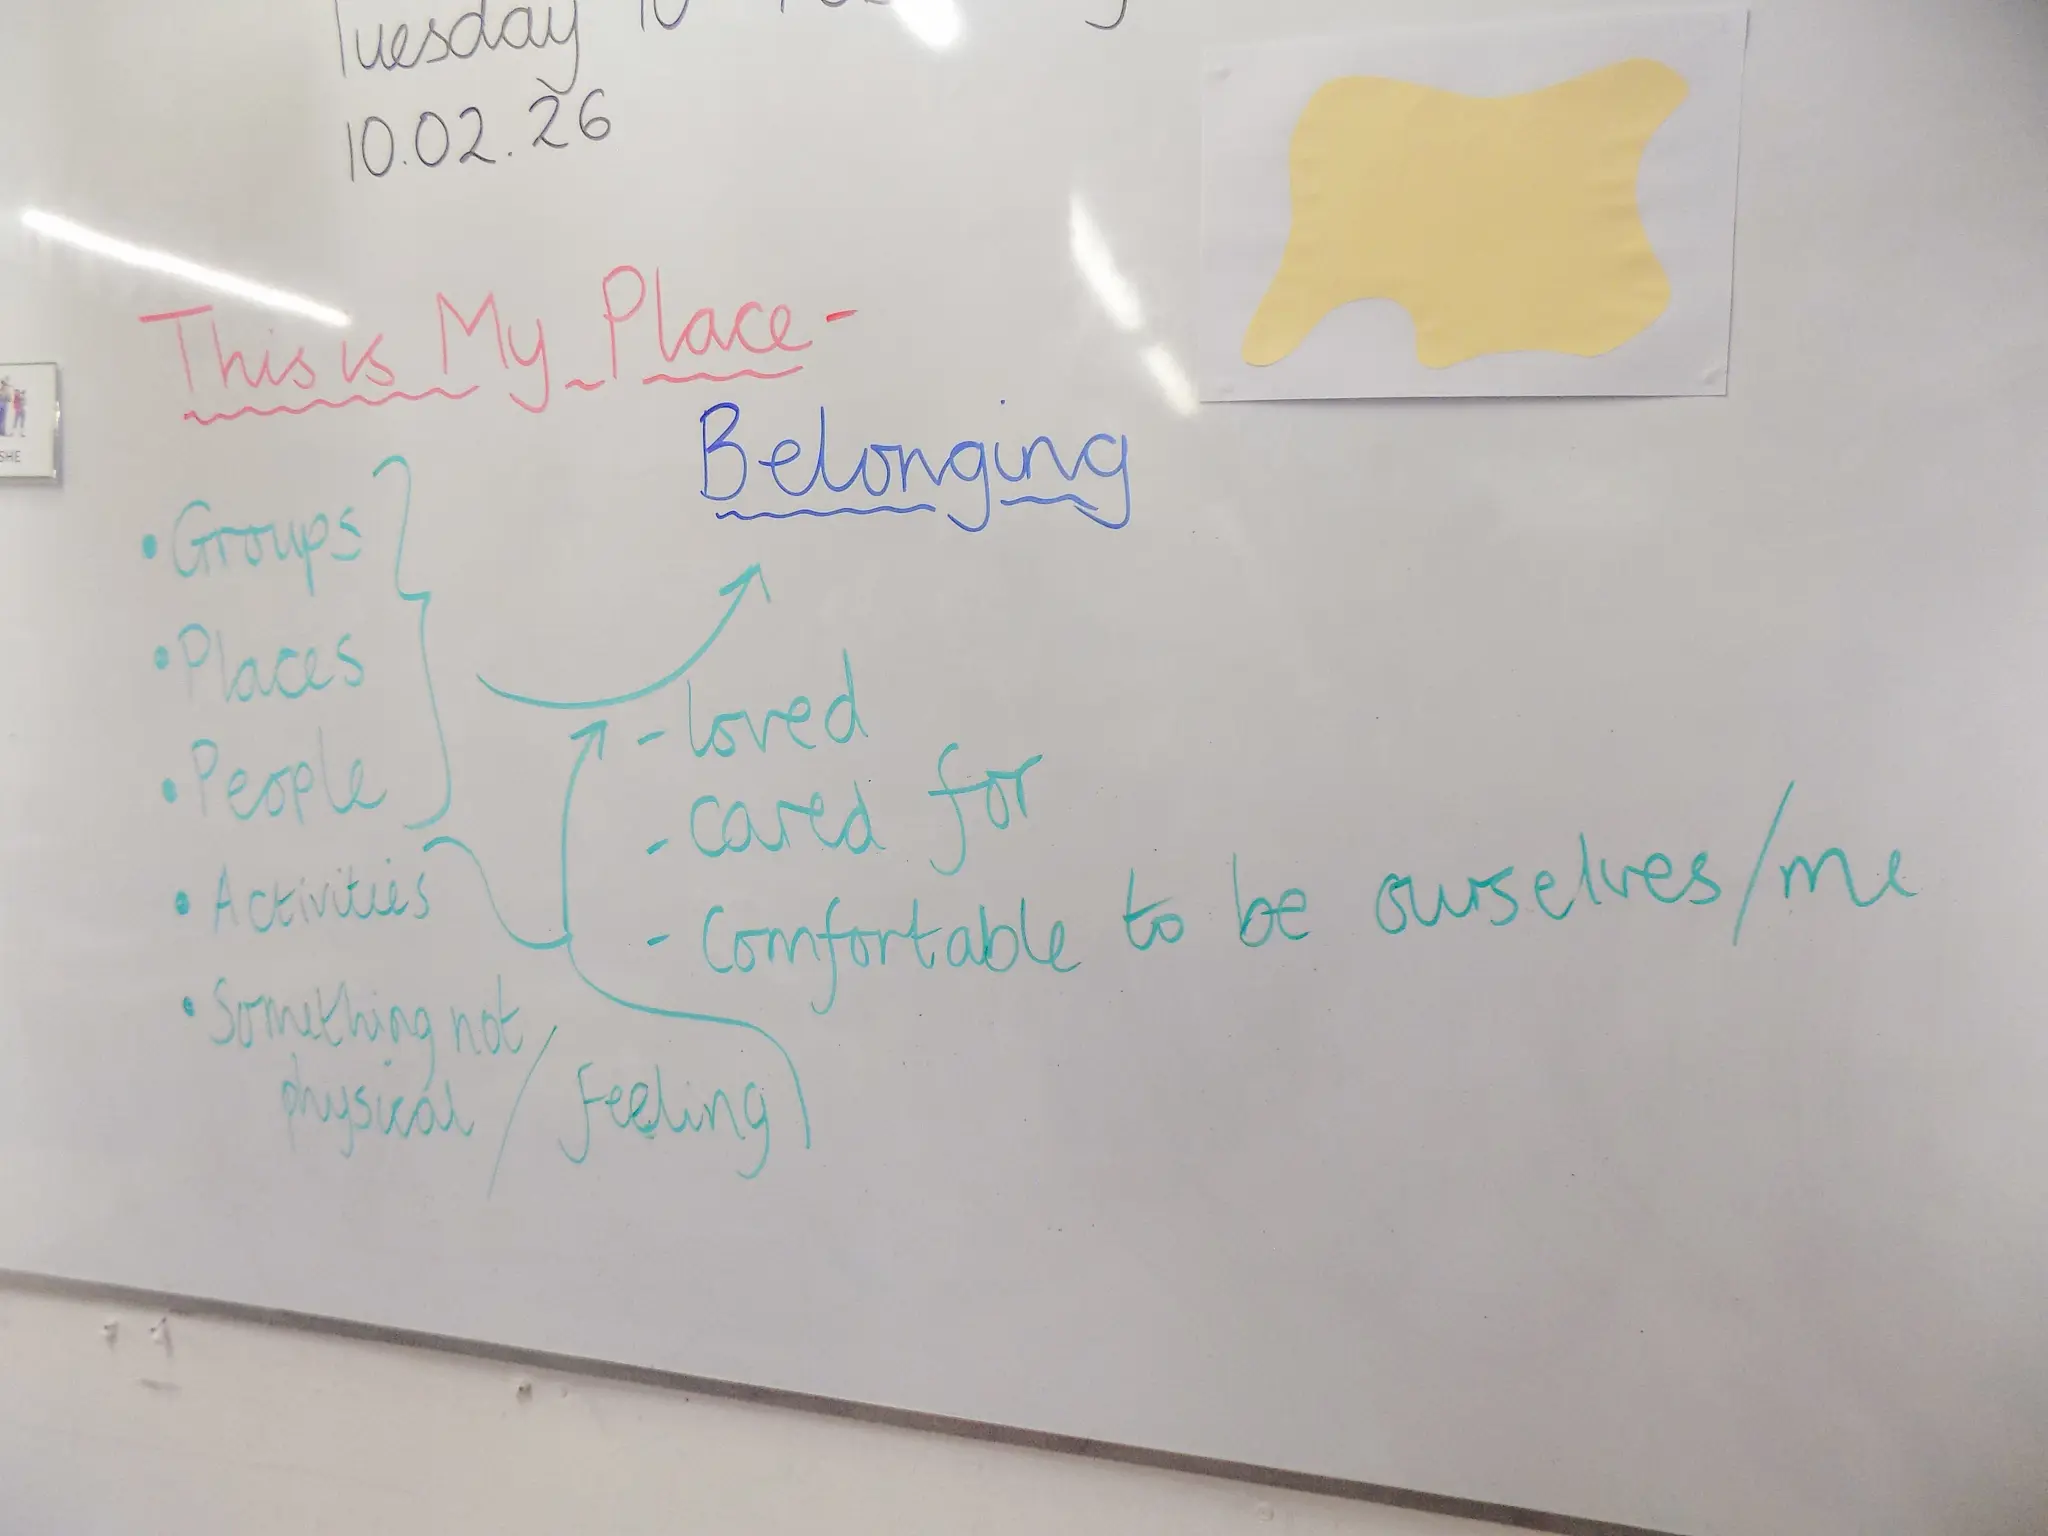 Tuesday 10
10.02.26
This is My Place -
Belonging
• Groups
• Places
• People
• Activities
• Something not
physical / Feeling
- loved
- cared for
- Comfortable to be ourselves/me
SHE